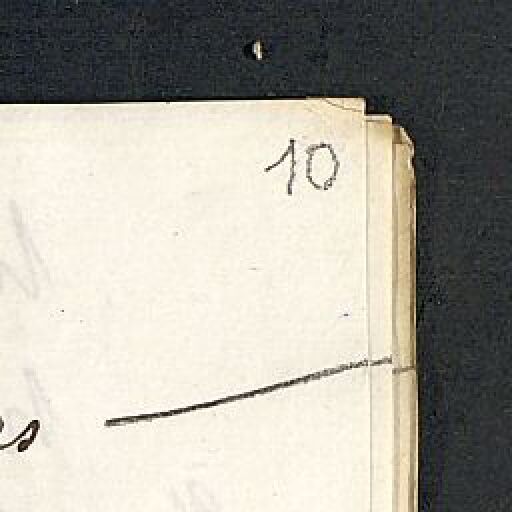 10
es